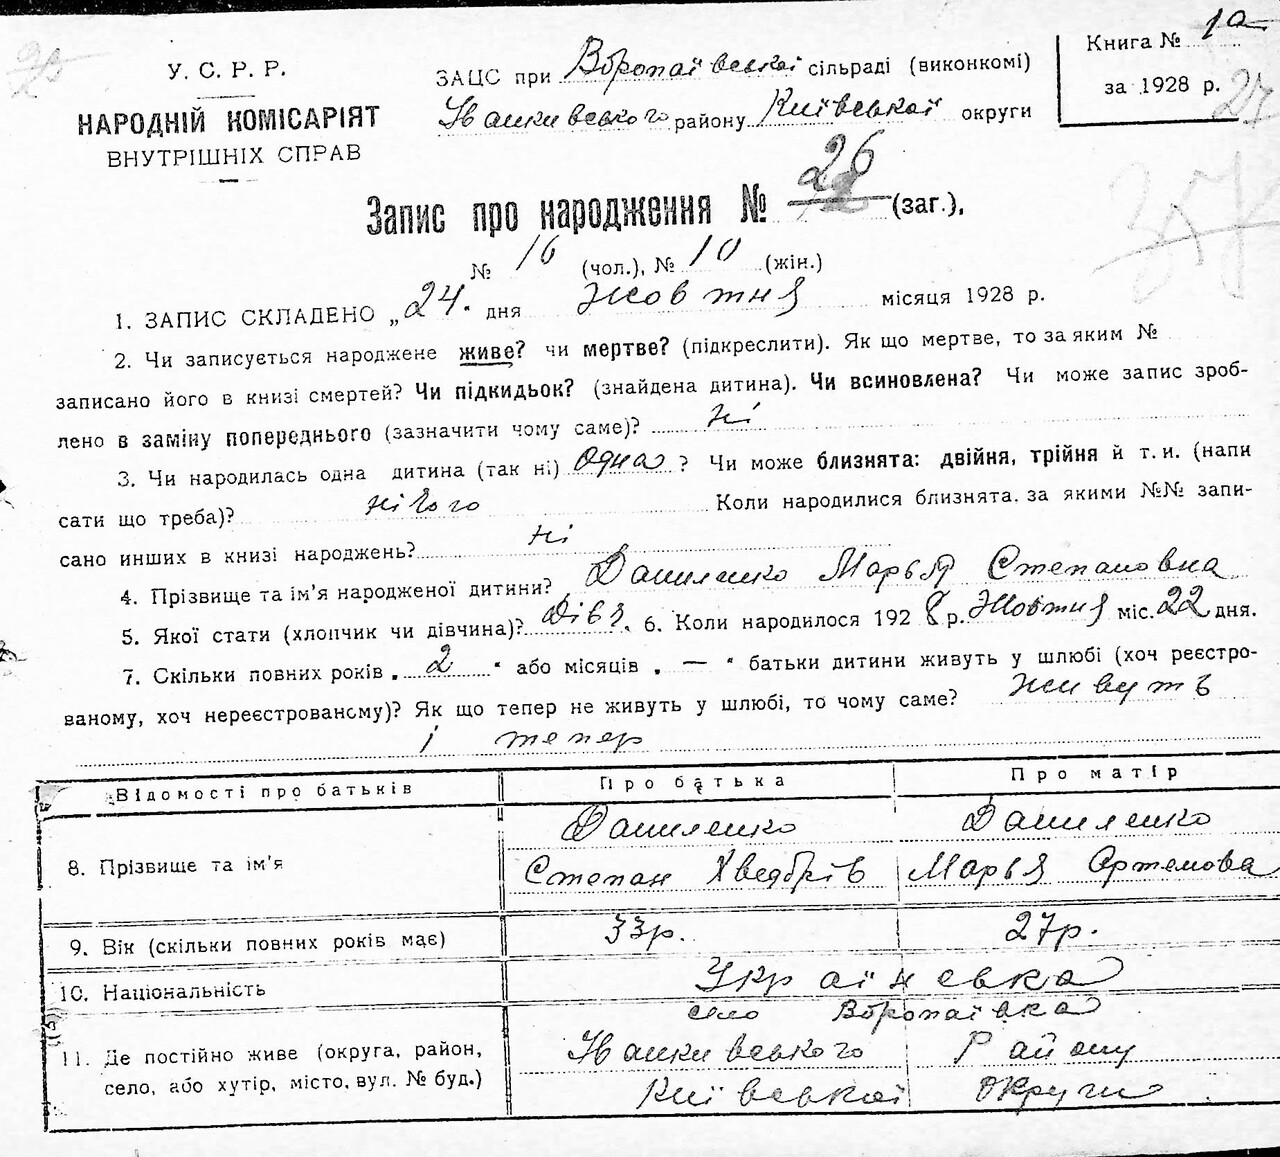 У. С. Р. Р.
НАРОДНІЙ КОМІСАРІЯТ
ВНУТРІШНІХ СПРАВ
ЗАЦС при Воропаївській сільраді (виконкомі)
Іванківського району Київської округи
Книга № 1а
за 1928 р.
27
Запис про народження № 26 (заг.),
№ 16 (чол.), № 10 (жін.)
1. ЗАПИС СКЛАДЕНО „24" дня Жовтня місяця 1928 р.
2. Чи записується народжене живе? чи мертве? (підкреслити). Як що мертве, то за яким №
записано його в книзі смертей? Чи підкидьок? (знайдена дитина). Чи всиновлена? Чи може запис зроб-
лено в заміну попереднього (зазначити чому саме)? Ні
3. Чи народилась одна дитина (так ні) одна? Чи може близнята: двійня, трійня й т. и. (напи
сати що треба)? нічого Коли народилися близнята. за якими №№ запи-
сано инших в книзі народжень? Ні
4. Прізвище та ім'я народженої дитини? Даниленко Марья Степановна
5. Якої стати (хлопчик чи дівчина)? Дівч. 6. Коли народилося 1928 р. Жовтня міс. 22 дня.
7. Скільки повних років „ 2 " або місяців „ — " батьки дитини живуть у шлюбі (хоч реєстро-
ваному, хоч нереєстрованому)? Як що тепер не живуть у шлюбі, то чому саме? живуть
і тепер
Відомості про батьків Про батька Про матір
Даниленко Даниленко
8. Прізвище та ім'я Степан Хведорів Марья Артемова
9. Вік (скільки повних років має) 33р. 27р.
10. Національність Українська
село Воропаївка
11. Де постійно живе (округа, район, Іванківського Району
село, або хутір, місто, вул. № буд.) Київської округи